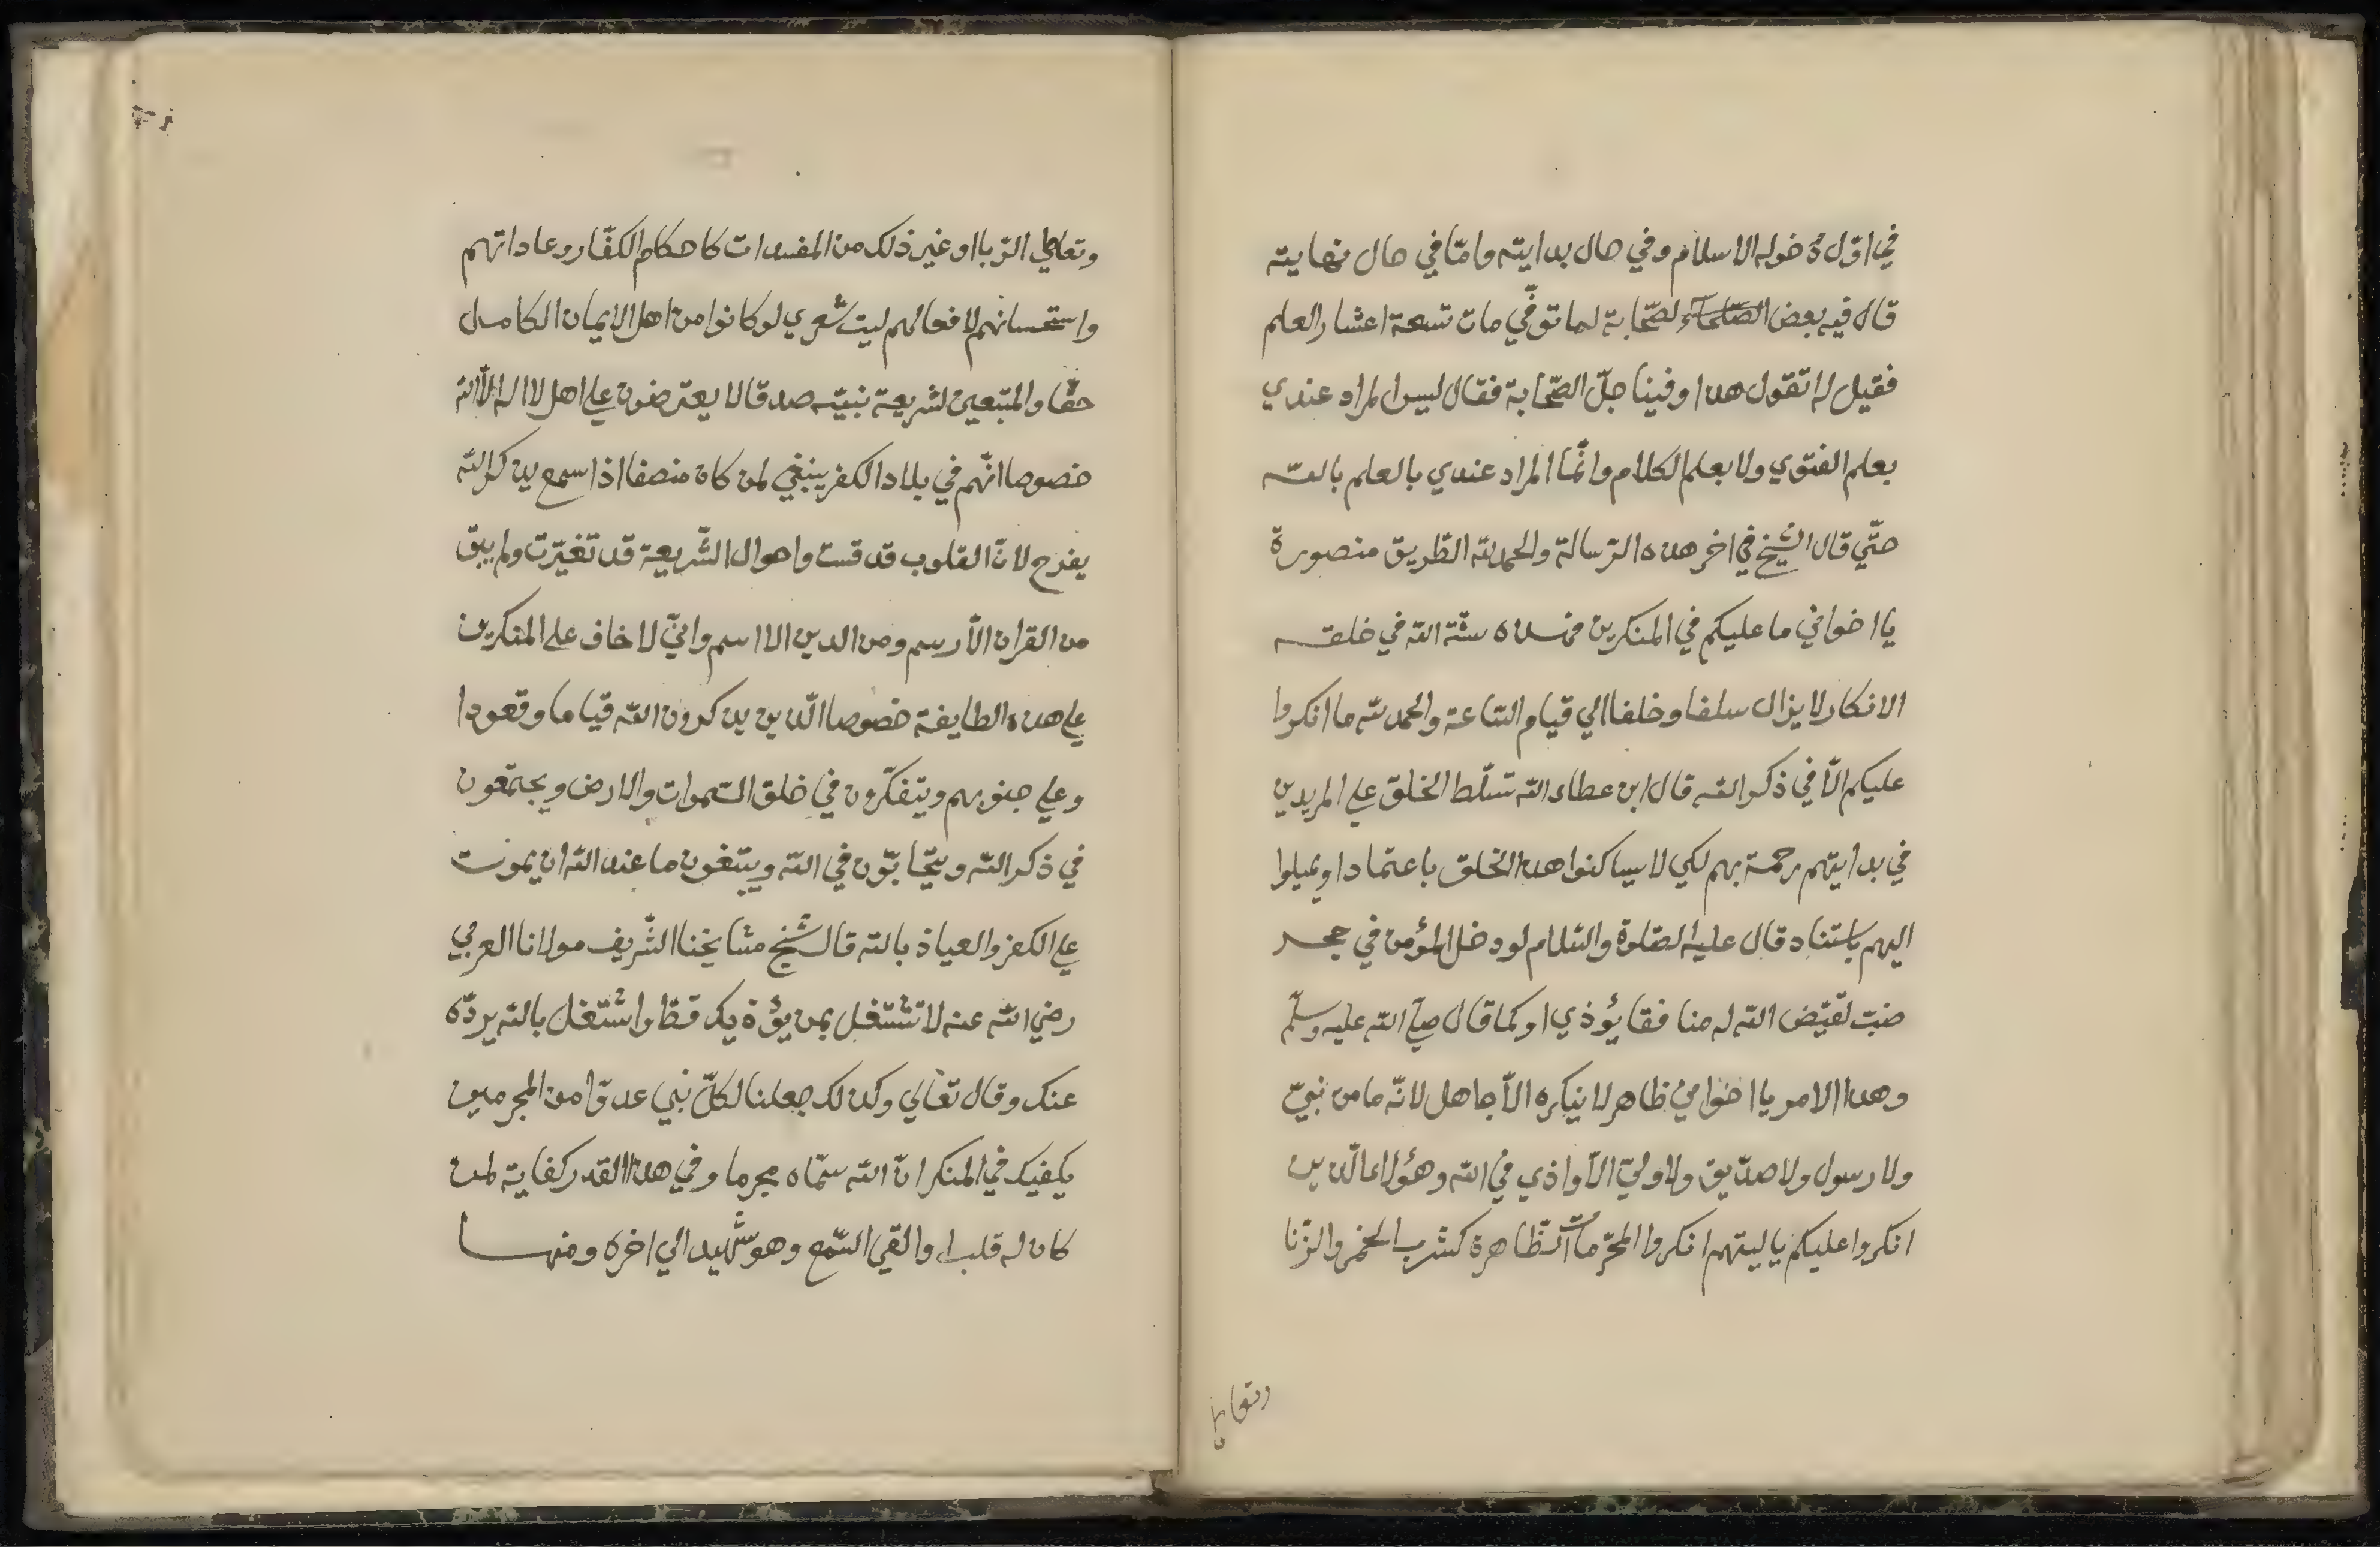 في اوّل دخوله الاسلام وفي حال بدايته وامّا في حال نهايته
قال فيه بعض الصّحابة لما توفّي مات تسعة اعشار العلم
فقيل له اتقول هذا وفينا جلّ الصّحابة فقال ليس المراد عندي
بعلم الفتوي ولا بعلم الكلام وانّما المراد عندي بالعلم بالله
حتّي قال الشّيخ في اخر هذه الرّسالة والحمد لله الطّريق منصورة
يا اخواني ما عليكم في المنكرين فهذه سنّة الله في خلقه
الانكار لا يزال سلفا وخلفا الي قيام السّاعة والحمد لله ما انكروا
عليكم الّا في ذكر الله قال ابن عطاء الله تسلّط الخلق علي المريدين
في بدايتهم رحمة بهم لكي لا يساكنوا هذا الخلق باعتماد او يميلوا
اليهم باستناد قال عليه الصّلوة والسّلام لو دخل المؤمن في جحر
ضبّ لقيّض الله له منافقا يؤذي او كما قال صلّي الله عليه وسلّم
وهذا الامر يا اخواني ظاهر لا ينكره الّا جاهل لانّه ما من نبيّ
ولا رسول ولا صدّيق ولا وليّ الّا واذي في الله وهؤلاء الّذين
انكروا عليكم يا ليتهم انكروا المحرّمات الظّاهرة كشرب الخمر والزّنا
وتعاطي
وتعاطي الرّبا او غير ذلك من المفسدات كاحكام الكفّار وعاداتهم
واستحسانهم لافعالهم ليت شعري لو كانوا من اهل الايمان الكامل
حقّا والمتّبعين لشريعة نبيّه صدقا لا يعترضون علي اهل لا اله الّا الله
خصوصا انّهم في بلاد الكفر ينبغي لمن كان منصفا اذا سمع بذكر الله
يفرح لانّ القلوب قد قست واحوال الشّريعة قد تغيّرت ولم يبق
من القران الّا رسم ومن الدين الا اسم وانّي لا خاف علي المنكرين
علي هذه الطايفة خصوصا الّذين يذكرون الله قياما وقعودا
وعلي جنوبهم ويتفكّرون في خلق السّموات والارض ويجتمعون
في ذكر الله ويتحّابّون في الله ويبتغون ما عند الله ان يموت
علي الكفر والعياذ بالله قال شيخ مشايخنا الشّريف مولانا العربي
رضي الله عنه لا تشتغل بمن يؤذيك قطّ واشتغل بالله يردّه
عنك وقال تعالي وكذلك جعلنا لكلّ نبي عدوّا من المجرمين
يكفيك في المنكر انّ الله سمّاه مجرما وفي هذا القدر كفاية لمن
كان له قلب او القي السّمع وهو شهيد الي اخره ومنها